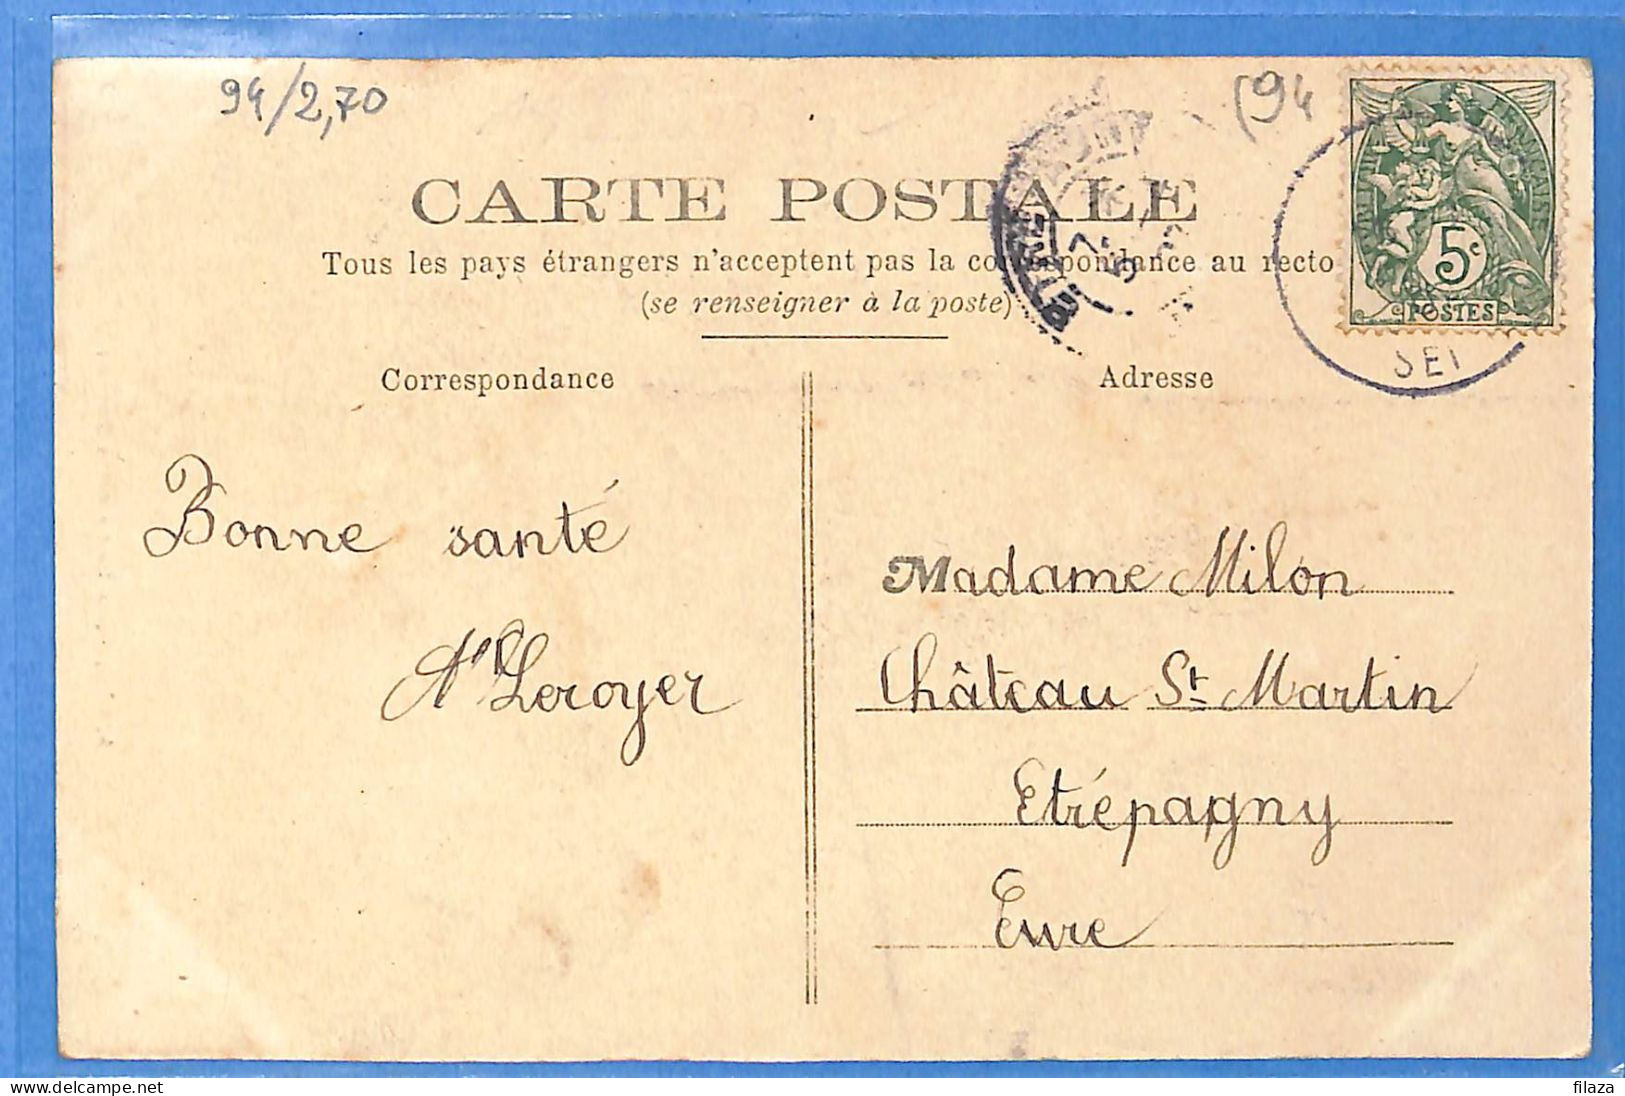 94/2,70
(94
CARTE POSTALE
Tous les pays étrangers n'acceptent pas la correspondance au recto
(se renseigner à la poste)
5c
POSTES
SEI
Correspondance
Adresse
Bonne santé
Leroyer
Madame Milon
Château St Martin
Etrépagny
Eure
www.delcampe.net
filaza